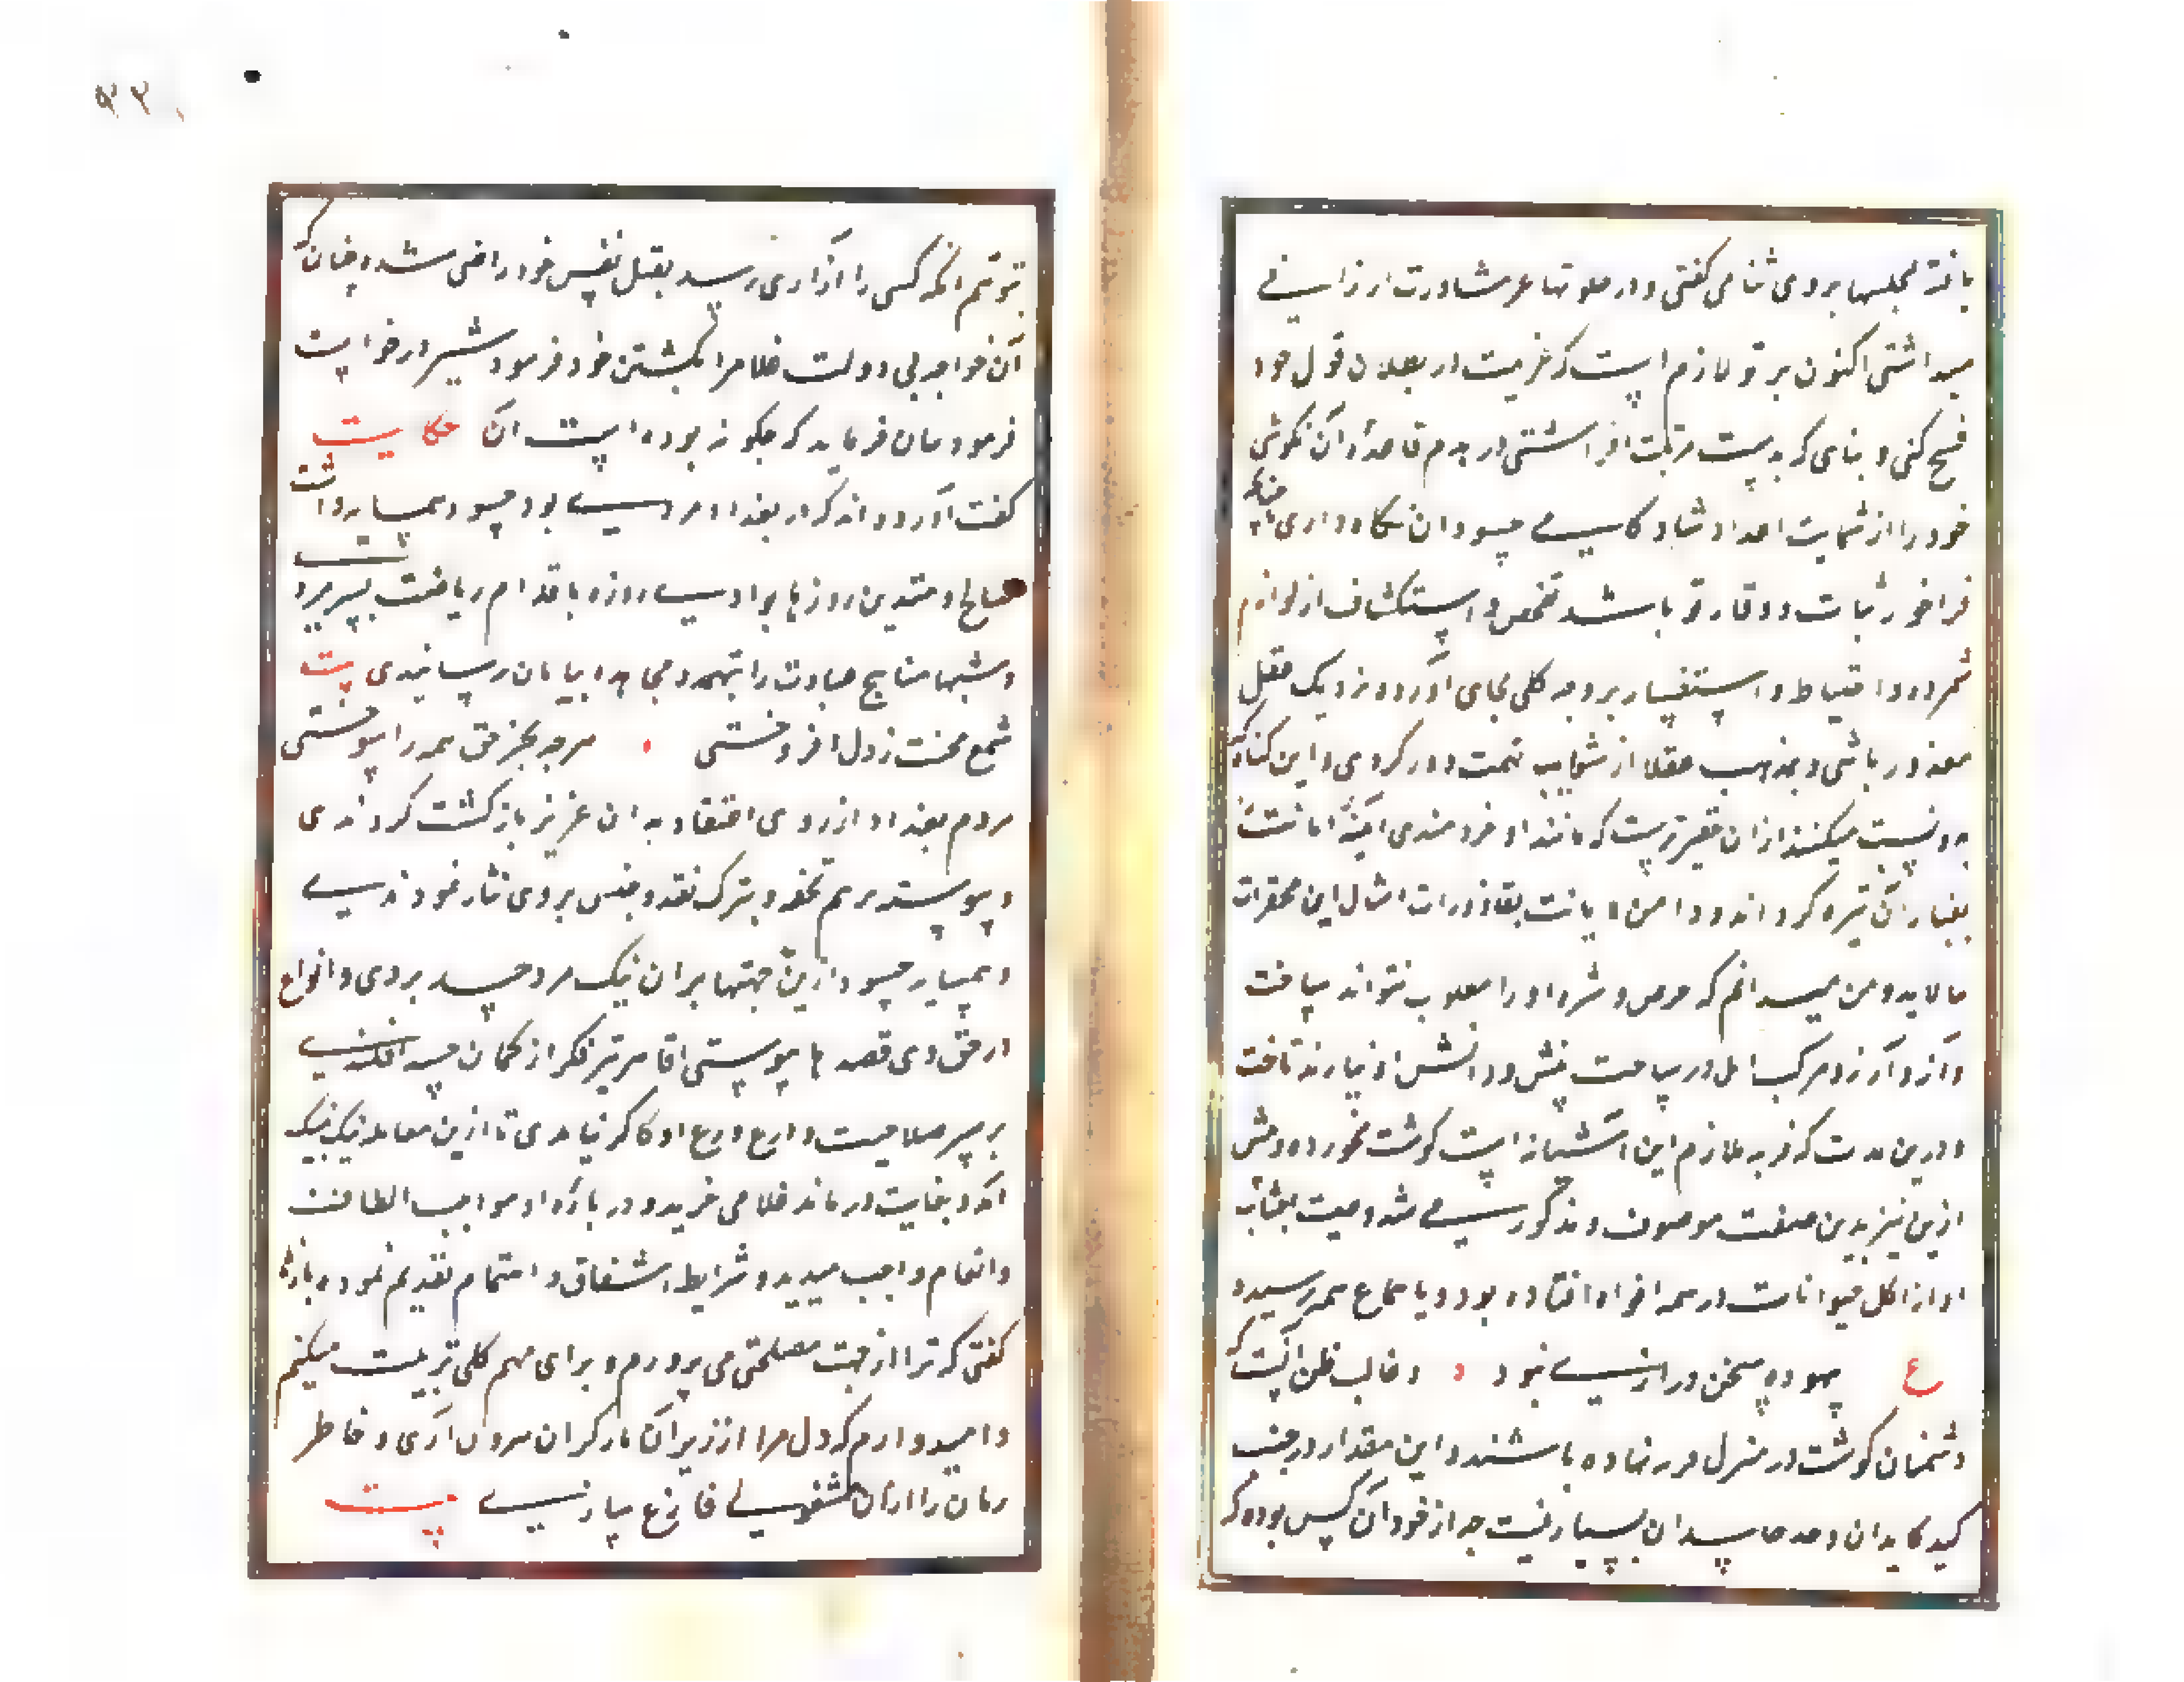 یافته مجلسها بر وی ثنا می گفتی و در خلوتها عز مشاورت ارزانی
میداشتی اکنون بر تو لازم است که عزیمت در بطلان قول خود
فسخ کنی و بنای که بدست تربیت افراشتی در هدم قاعدهٔ آن نکوشی
خود را از شماتت اعدا و شادکامی حسودان نگاه داری چنانکه
فراخور ثبات و وقار تو باشد تفحص و استکشاف از لوازم
شمرده و احتیاط و استفسار بر وجه کلی بجای آورده نزدیک عقل
معذور باشی و بمذهب عقلا از شوایب تهمت دور گردی و این گناه که
بدو نسبت میکنند از ان حقیرترست که مانند او خردمندی آینهٔ امانت را
بغبار آن تیره گرداند و دامن دیانت بقاذورات امثال این محقرات
بیالاید و من میدانم که حرص و شره او را مغلوب نتواند ساخت
و آز و آرزو مرکب امل در ساحت بینش و دانش او نیارند تاخت
و درین مدت که فریسه ملازم این آستانه است گوشت نخورده و پیش
ازین نیز بدین صفت موصوف و مذکور می شد و صیت اجتناب
او از اکل حیوانات در همه افواه افتاده بود و با سماع همه رسیده
ع بیهوده سخن درازی نبود و غالب ظن آنست که
دشمنان گوشت در منزل او نهاده باشند و این مقدار در جنب
کید کایدان و حسد حاسدان بسیار نیست چه از خود آن کس بوده که
۹۳
بتوقع آنکه کسی را آزاری رسد بقتل نفس خود راضی شده چنانکه
آن خواجه بی دولت غلام را بکشتن خود فرمود شیر درخواست
فرمود مان فرماید که چگونه بوده است آن حکایت
گفت آورده اند که در بغداد مردی بود حسود همسایه داشت
صالح و متدین روزها بوادی روزه باقدام ریاضت بسر بردی
و شبها مناهج عبادت را بتهجد و مجاهده بپایان رسانیدی بیت
شمع محبت ز دل افروختی هرچه بجز حق همه را سوختی
مردم بغداد از روی اعتقاد به ان عزیز بازگشت کردندی
و پیوسته برسم تحفه و تبرک نقد و جنس بر وی نثار نمودندی
و همسایه حسود ازین جهتها بر ان نیک مرد حسد بردی و انواع
در حق وی قصدها پیوستی اما هر تیر فکر از کمان حسد افکندی
بر سپر صلاحیت و درع ورع او کارگر نیامدی تا ازین معامله بتنگ
آمد و بغایت درماند غلامی خرید و در باره او مواجب الطاف
و انعام واجب میدید و شرایط اشفاق و اهتمام تقدیم نموده بارها
گفتی که ترا از جهت مصلحتی می پرورم و برای مهم کلی تربیت میکنم
و امیدوارم که دل مرا از زیر آن بار گران بیرون آری و خاطر
مرا از ان مشغولی فارغ سازی بیت